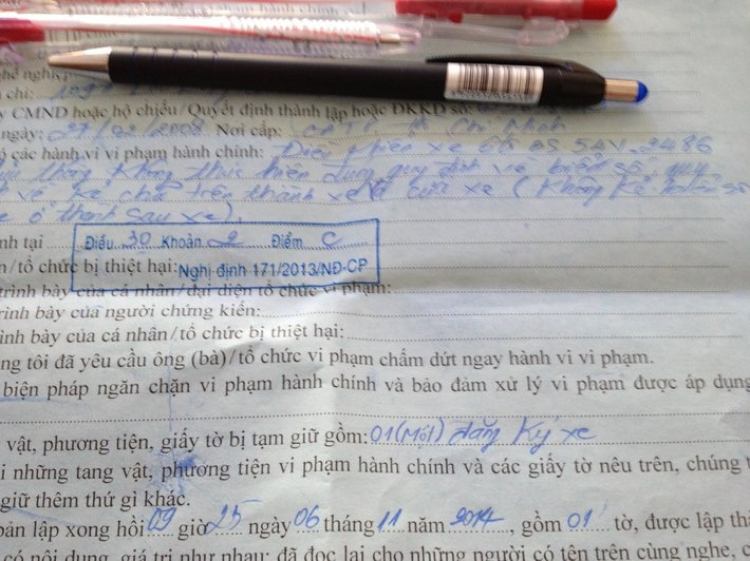 ghề nghiệp
chỉ:
y CMND hoặc hộ chiếu/Quyết định thành lập hoặc ĐKKD số:
ngày: 27/02/2008 Nơi cấp: CATP Chí Minh
ó các hành vi vi phạm hành chính: Điều khiển xe ô tô 5AV.2486
thông không thực hiện đúng quy định về biển số, quy
về kẻ chữ trên thành xe cửa xe (Không Kẻ biển số
ở thành sau xe).
nh tại
Điều 30 Khoản 2 Điểm C
n/tổ chức bị thiệt hại:
Nghị định 171/2013/NĐ-CP
trình bày của cá nhân/đại diện tổ chức vi phạm:
rình bày của người chứng kiến:
ình bày của cá nhân/tổ chức bị thiệt hại:
ng tôi đã yêu cầu ông (bà)/tổ chức vi phạm chấm dứt ngay hành vi vi phạm.
biện pháp ngăn chặn vi phạm hành chính và bảo đảm xử lý vi phạm được áp dụng
vật, phương tiện, giấy tờ bị tạm giữ gồm: 01 (Một) đăng Ký xe
i những tang vật, phương tiện vi phạm hành chính và các giấy tờ nêu trên, chúng t
giữ thêm thứ gì khác.
bản lập xong hồi 09 giờ 25 ngày 06 tháng 11 năm 2014, gồm 01 tờ, được lập thà
có nội dung, giá trị như nhau; đã đọc lại cho những người có tên trên cùng nghe, c